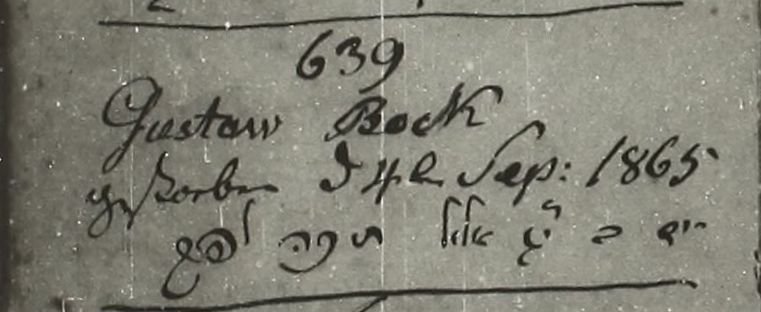 639
Gustaw Bock
gestorben d 4t Sep: 1865
יום ב י״ג אלול תרכה לפק